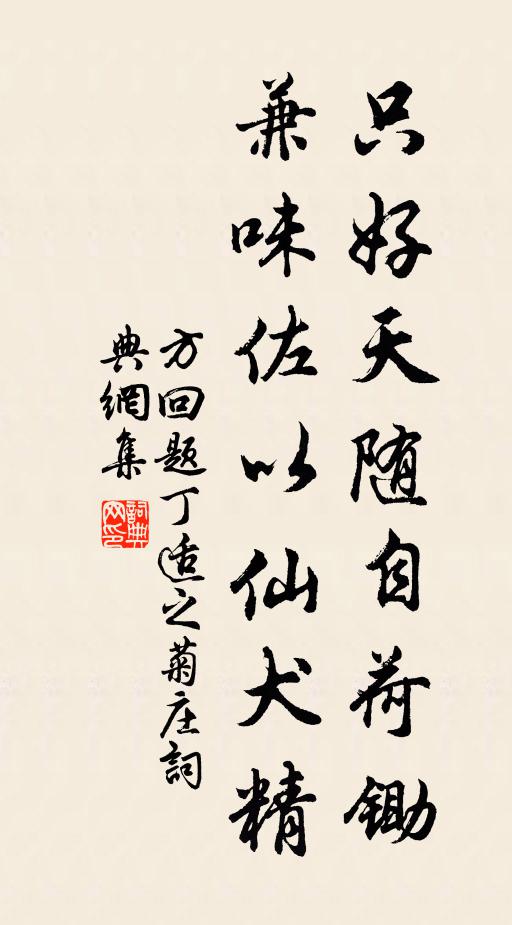 只好天随自荷锄
兼味佐以仙犬精
方回题丁适之菊庄詞
典網集
詞典网印